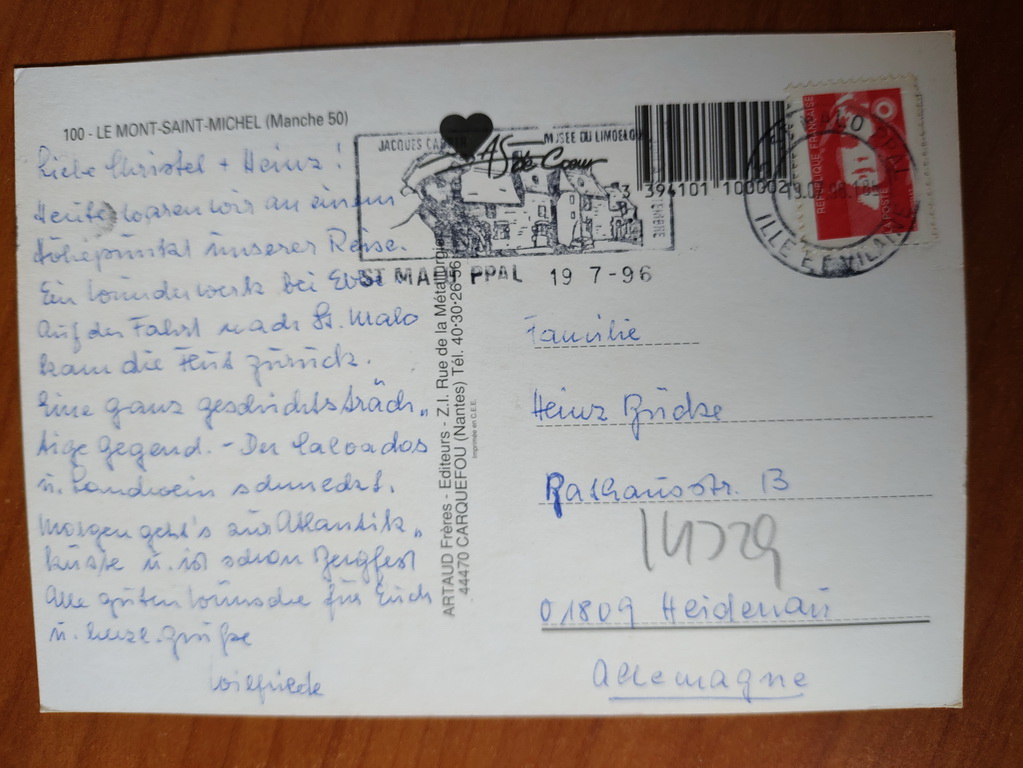 100 - LE MONT-SAINT-MICHEL (Manche 50)
Liebe Christel + Heinz!
Heute waren wir an einem
Höhepunkt unserer Reise.
Ein Wunderwerk bei Ebbe
Auf der Fahrt nach St. Malo
kam die Flut zurück.
Eine ganz geschichtsträch„
tige Gegend. - Der Calvados
u. Landwein schmeckt.
Morgen geht's zur Atlantik„
küste u. ist schon Bergfest
Alle guten Wünsche für Euch
u. herzl. Grüße
Wilfriede
ARTAUD Frères - Editeurs - Z.I. Rue de la Métallurgie
44470 CARQUEFOU (Nantes) Tél. 40-30-26-56
Imprimée en C.E.E.
JACQUES
MUSÉE DU LIMOELOU
AS de Coeur
ST MALO PPAL 19 7-96
3 394101 100002
REPUBLIQUE FRANÇAISE
LA POSTE
ILLE ET VILAINE
Familie
Heinz
Rathausstr. 13
01809 Heidenau
Allemagne